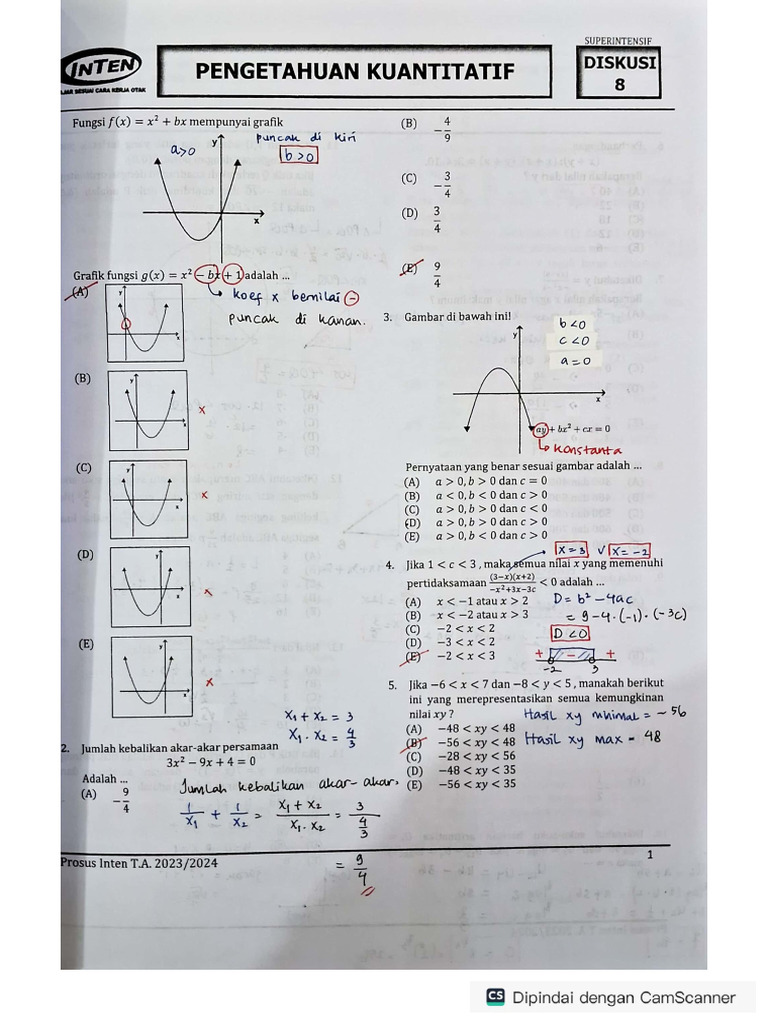 SUPERINTENSIF
INTEN
AJAR SESUAI CARA KERJA OTAK
PENGETAHUAN KUANTITATIF
DISKUSI
8
Fungsi f(x) = x² + bx mempunyai grafik
a>0
puncak di kiri
b>0
y
x
Grafik fungsi g(x) = x² − bx + 1 adalah ...
koef x bernilai −
puncak di kanan.
(A)
y
x
(B)
y
x
x
(C)
y
x
x
(D)
y
x
x
(E)
y
x
x
2. Jumlah kebalikan akar-akar persamaan
3x² − 9x + 4 = 0
x₁ + x₂ = 3
x₁ . x₂ = 4/3
Adalah ...
(A) −9/4
Jumlah kebalikan akar-akar
1/x₁ + 1/x₂ = (x₁ + x₂)/(x₁ . x₂) = 3/(4/3)
= 9/4
(B) −4/9
(C) −3/4
(D) 3/4
(E) 9/4
3. Gambar di bawah ini!
b<0
c<0
a=0
y
x
ay + bx² + cx = 0
konstanta
Pernyataan yang benar sesuai gambar adalah ...
(A) a > 0, b > 0 dan c = 0
(B) a < 0, b < 0 dan c > 0
(C) a > 0, b > 0 dan c < 0
(D) a > 0, b > 0 dan c > 0
(E) a > 0, b < 0 dan c > 0
x=3 v x=-2
4. Jika 1 < c < 3 , maka semua nilai x yang memenuhi
pertidaksamaan (3−x)(x+2)/(−x²+3x−3c) < 0 adalah ...
(A) x < −1 atau x > 2
(B) x < −2 atau x > 3
(C) −2 < x < 2
(D) −3 < x < 2
(E) −2 < x < 3
D = b² − 4ac
= 9 − 4 . (−1) . (−3c)
D < 0
+ − +
-2 3
5. Jika −6 < x < 7 dan −8 < y < 5 , manakah berikut
ini yang merepresentasikan semua kemungkinan
nilai xy ?
(A) −48 < xy < 48
(B) −56 < xy < 48
(C) −28 < xy < 56
(D) −48 < xy < 35
(E) −56 < xy < 35
Hasil xy minimal = − 56
Hasil xy max = 48
Prosus Inten T.A. 2023/2024
1
CS Dipindai dengan CamScanner